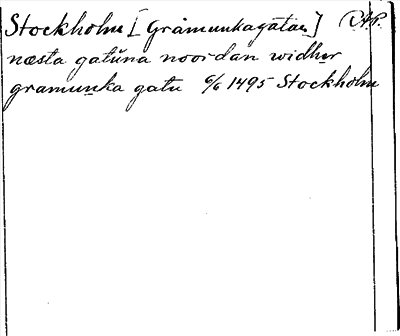 Stockholm [Gråmunkagatan] RAP.
næsta gatúna noordan widher
gramunka gatu 6/6 1495 Stockholm